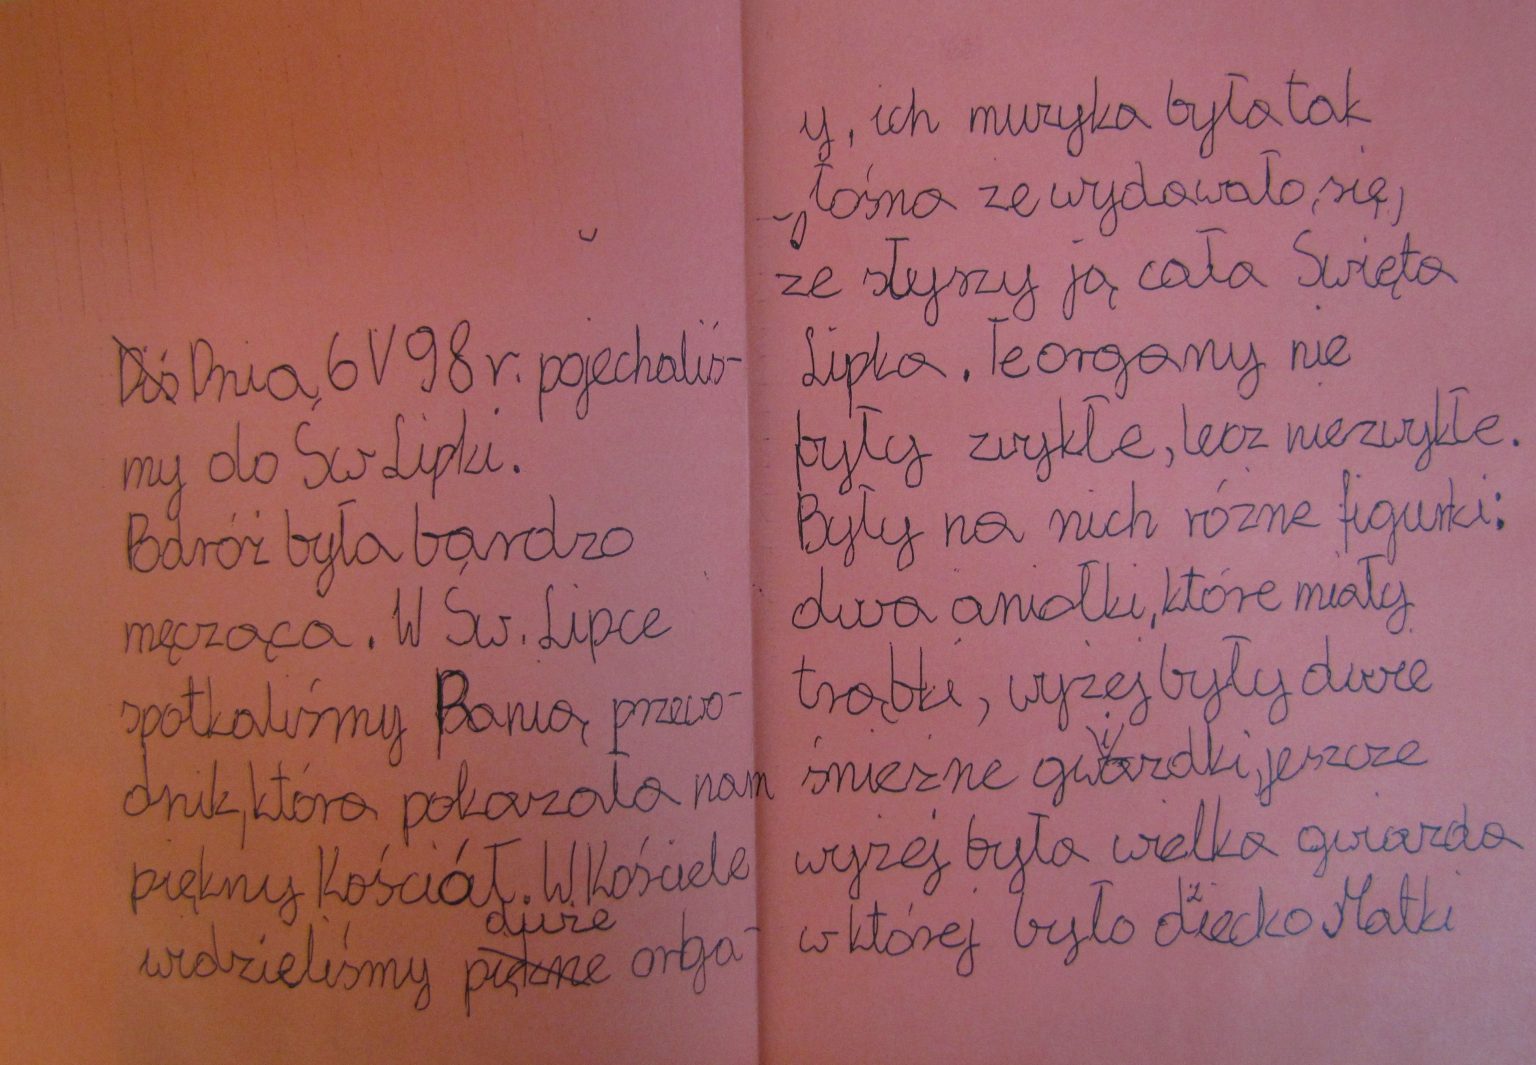 Dziś Dnia 6 V 98 r. pojechaliś-
my do Św Lipki.
Podróż była bardzo
męcząca. W Św. Lipce
spotkaliśmy Pania, przewo-
dnik, która pokazała nam
piękny Kościół. W Kościele
duże
widzieliśmy piękne orga-
y, ich muzyka była tak
głośna ze wydawało się,
ze słyszy ją cała Święta
Lipka. Te organy nie
były zwykłe, lecz niezwykłe.
Były na nich różne figurki:
dwa aniołki, które miały
trąbki, wyżej były dwie
śnieżne gwiazdki, jeszcze
wyżej była wielka gwiazda
w której było dziecko Matki